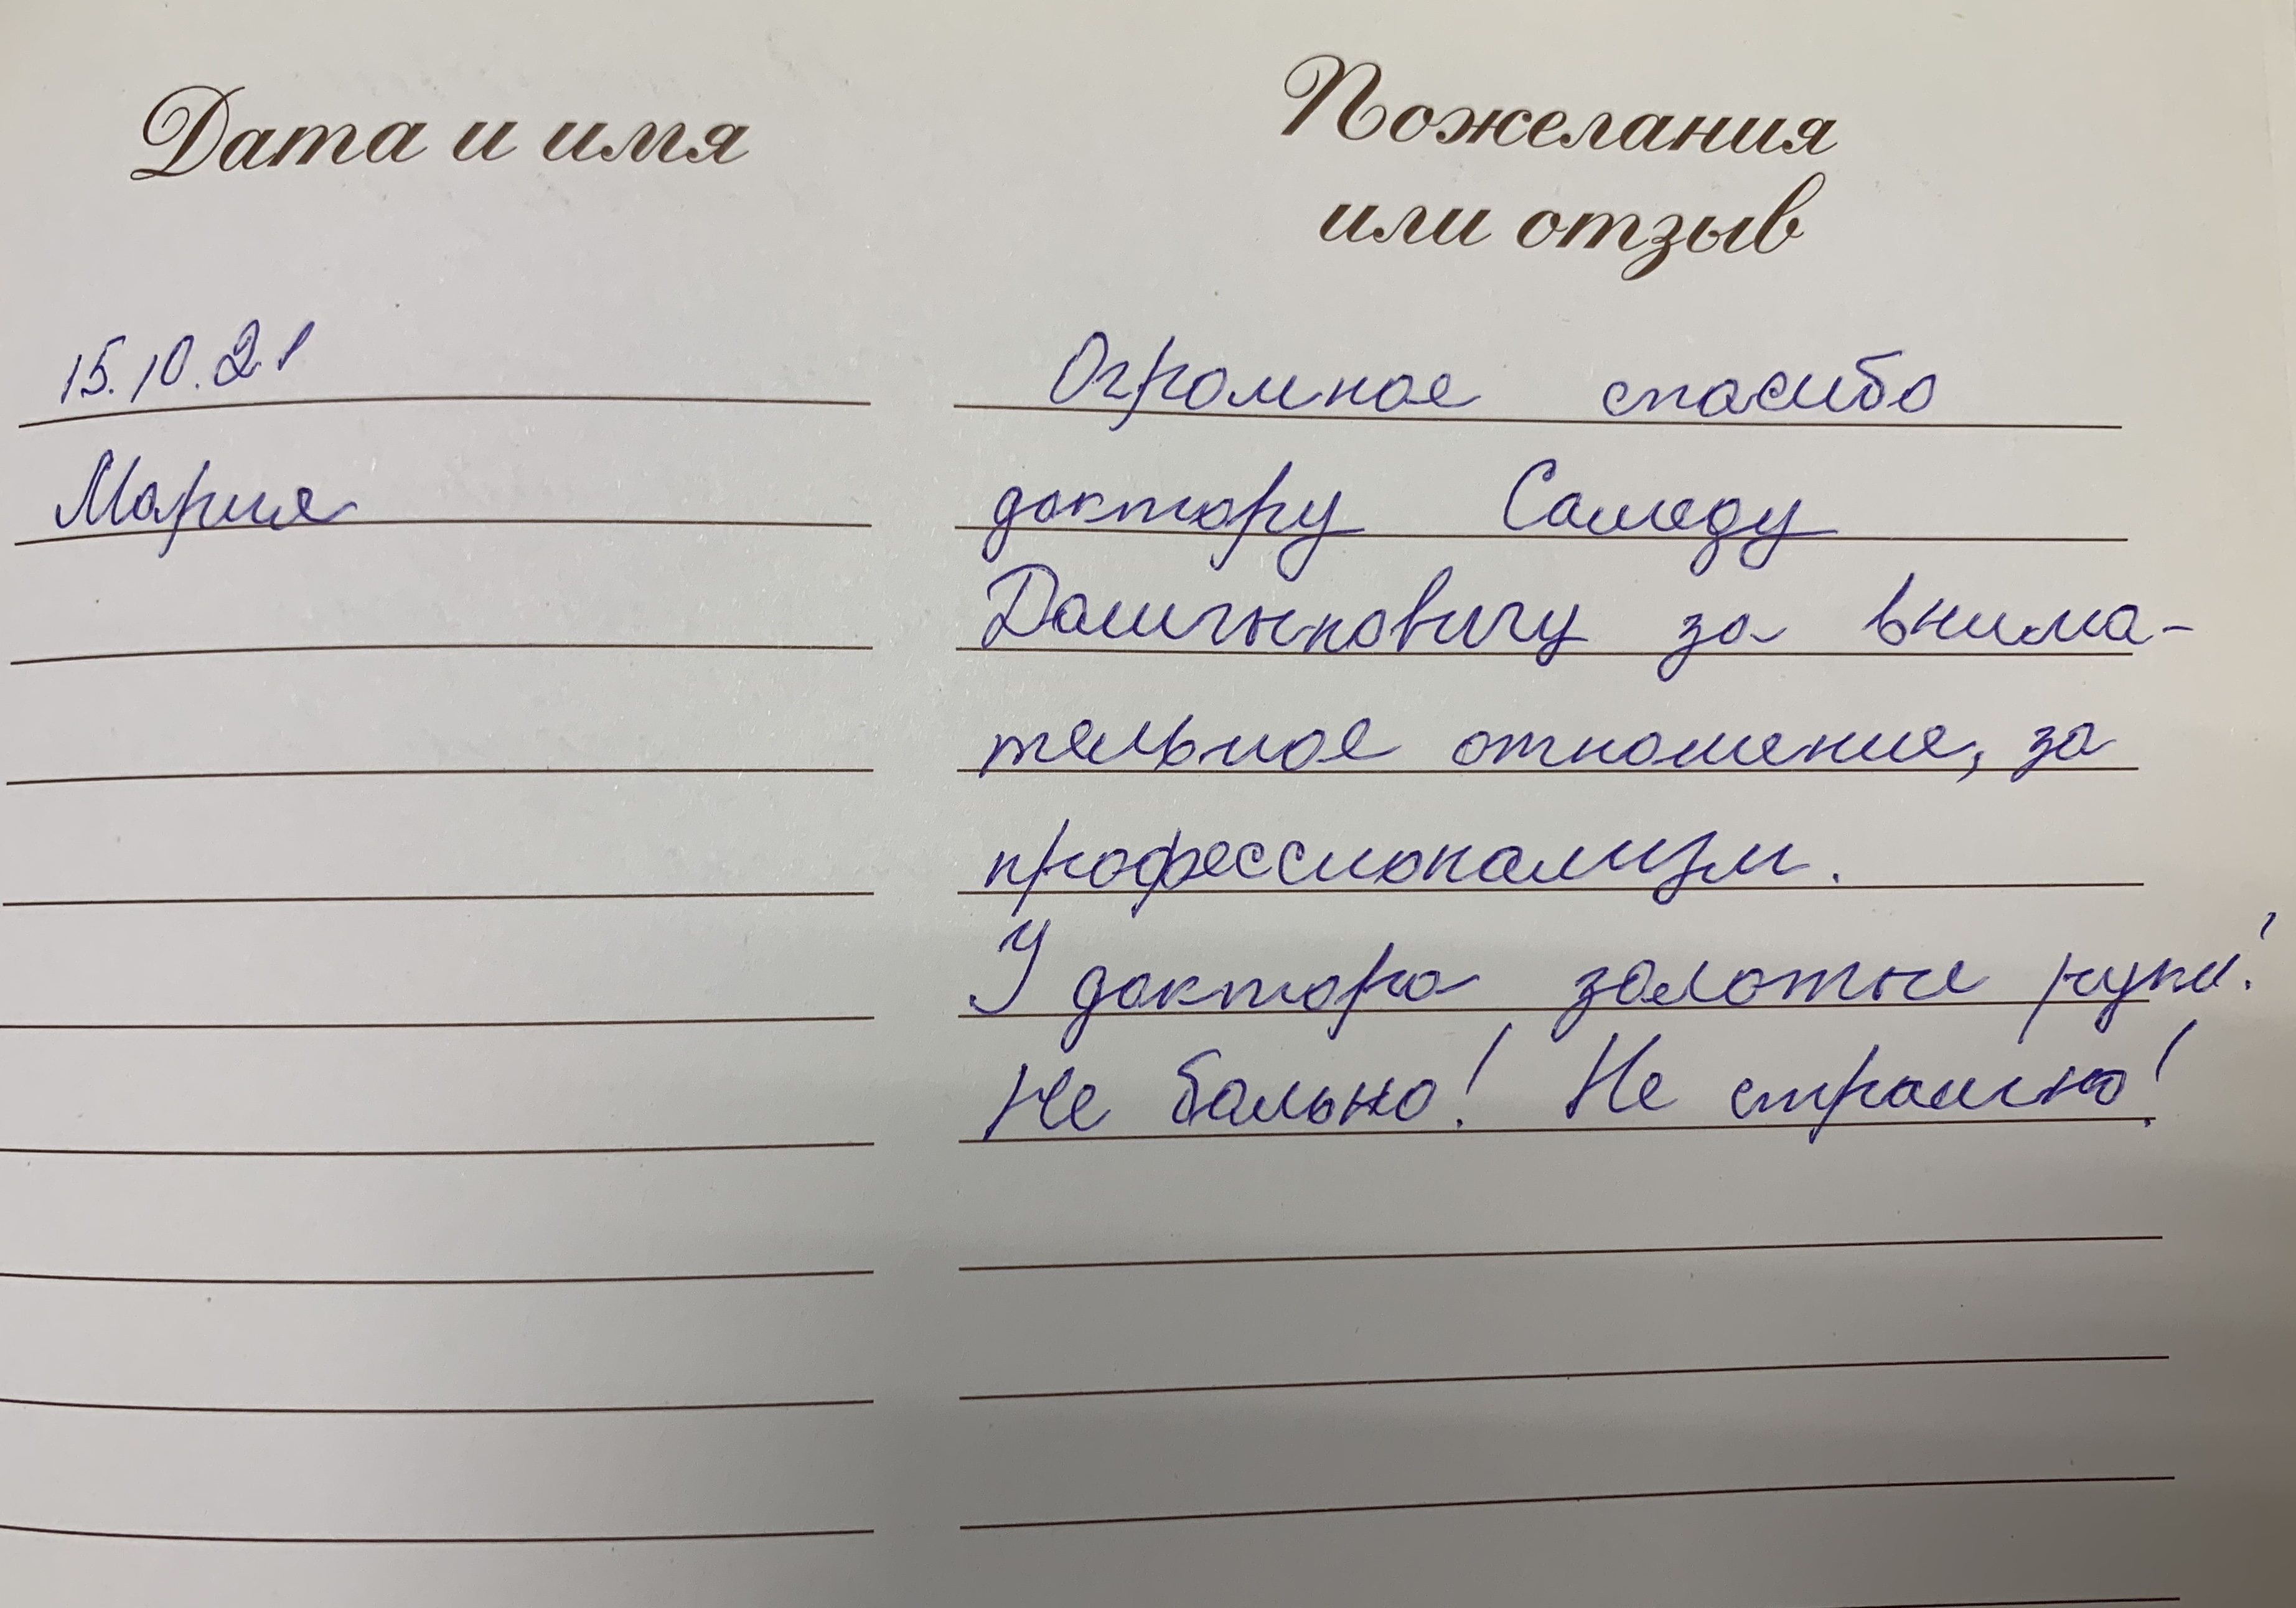 Дата и имя
Пожелания
или отзыв
15.10.21
Мария
Огромное спасибо
доктору Самеду
за внима-
тельное отношение, за
профессионализм.
У доктора золотые руки!
Не больно! Не страшно!